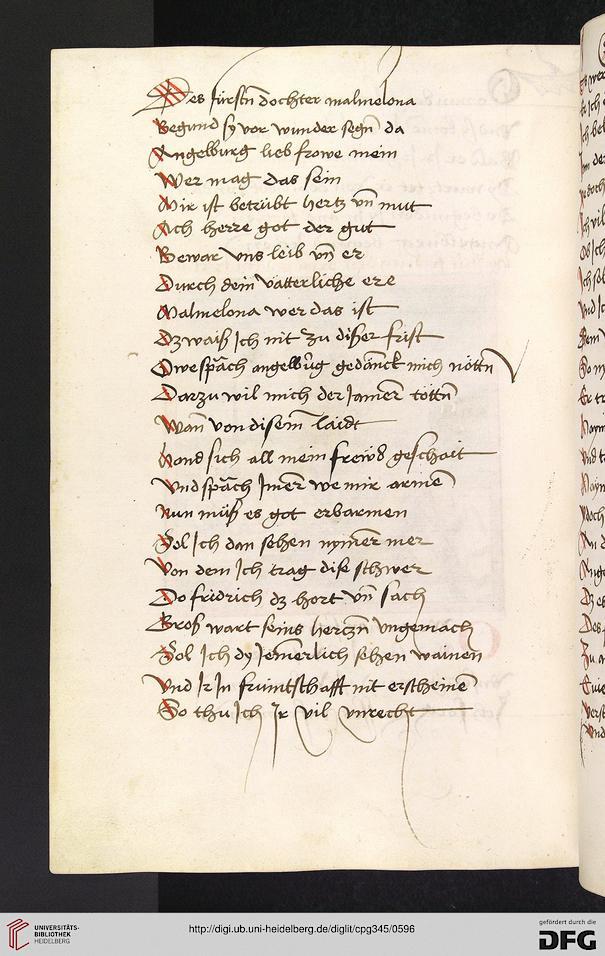 Des fürstn̄ dochter malmelona
Begund sy vor wunder segn̄ da
Angelburg lieb frowe mein
Wer mag das sein
Mir ist betrübt hertz vn̄ mut
Ach herre got der gut
Bewar vns leib vn̄ er
Durch dein vätterliche ere
Malmelona wer das ist
Dz waiß Ich nit zu diser frist
Owe sprach angelbu̇rg gedänck mich nöttn̄
Darzu wil mich der Jamer töttn̄
Wan̄ von disem laidt
hond sich all mein freẅd geschait
Vnd sprach Jmer we mir armē
Nun müß es got erbarmen
Sol Ich dan sehen nymer mer
Von dem Ich trag dise schwer
Do fridrich dz hort vn̄ sach
Groß wart seins hertzn̄ vngemach
Sol Ich dy Jemerlich sehen wainen
Vnd Ir In fruintschafft nit erscheinē
So thu Ich Ir vil vnrecht
UNIVERSITÄTS-
BIBLIOTHEK
HEIDELBERG
http://digi.ub.uni-heidelberg.de/diglit/cpg345/0596
gefördert durch die
DFG